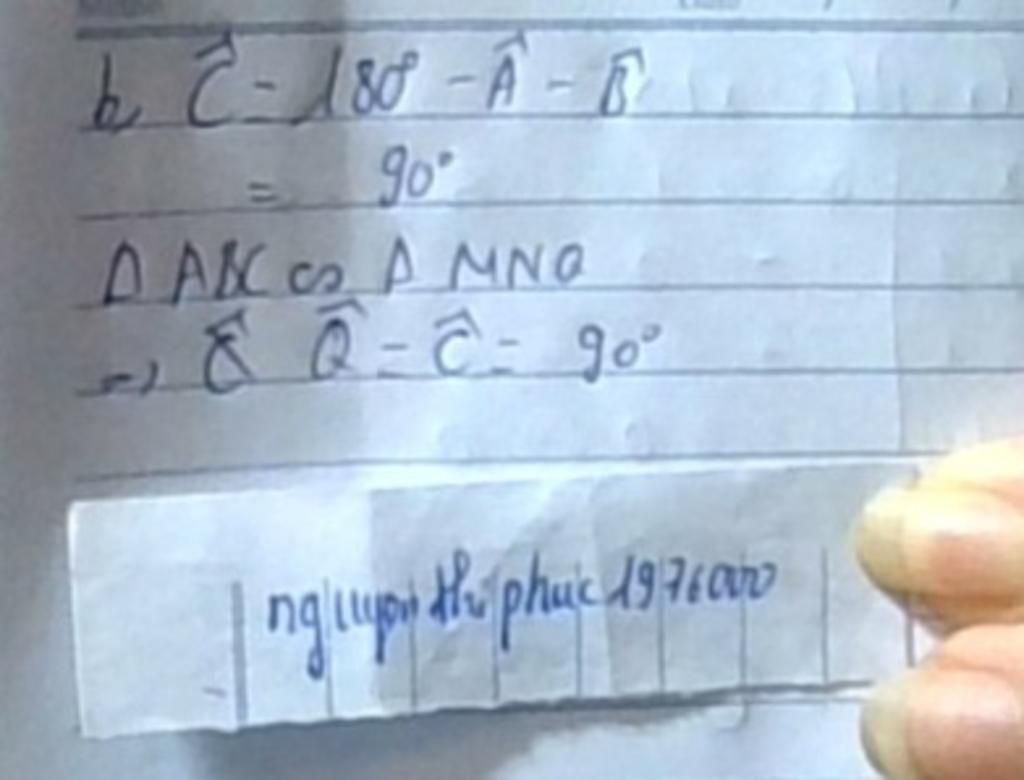 b, Ĉ = 180° - Â - B̂
= 90°
Δ ABC ∽ Δ MNQ
=> Q̂ = Ĉ = 90°
nguyen thi phuc 1976000